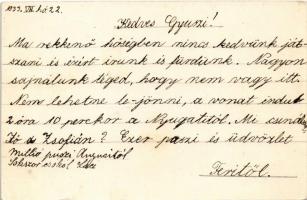 1933. VII. hó 22.
Kedves Gyuszi!
Ma rekkenő hőségben nincs kedvünk ját-
szani és ezért irunk is fürdünk. Nagyon
sajnálunk téged, hogy nem vagy itt.
Nem lehetne le-jönni, a vonat indul
2 óra 10 perckor a Nyugatitól. Mi
és Zsofián? Ezer pasi és üdvözlet
Millió puszi Anyucitól
Sokszor csókol
Feritől.